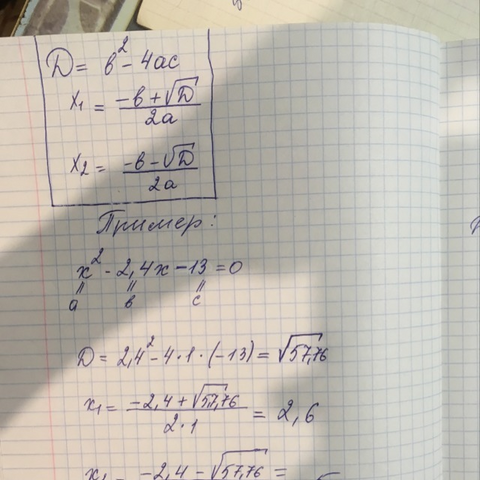 D = b² - 4ac
x₁ = (-b + √D) / 2a
x₂ = (-b - √D) / 2a
Пример:
x² - 2,4x - 13 = 0
a b c
D = 2,4² - 4·1·(-13) = √57,76
x₁ = (-2,4 + √57,76) / 2·1 = 2,6
x₁ = -2,4 - √57,76 =